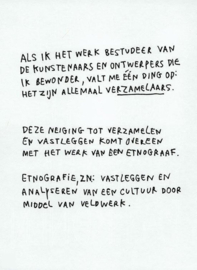 ALS IK HET WERK BESTUDEER VAN
DE KUNSTENAARS EN ONTWERPERS DIE
IK BEWONDER, VALT ME ÉÉN DING OP:
HET ZIJN ALLEMAAL VERZAMELAARS.
DEZE NEIGING TOT VERZAMELEN
EN VASTLEGGEN KOMT OVEREEN
MET HET WERK VAN EEN ETNOGRAAF.
ETNOGRAFIE, ZN: VASTLEGGEN EN
ANALYSEREN VAN EEN CULTUUR DOOR
MIDDEL VAN VELDWERK.